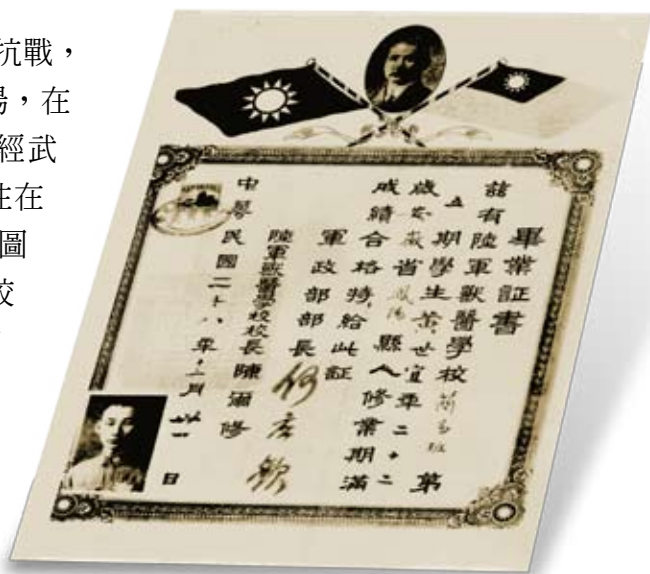 抗戰，
，在
經武
在
圖
校
畢業証書
茲有陸軍獸醫學校簡易班第
五期學生黃世宜年二十二
歲安徽省鳳陽縣人修業期滿
成績合格特給此証
軍政部部長何應欽
陸軍獸醫學校校長陳爾修
中華民國二十八年十二月 日